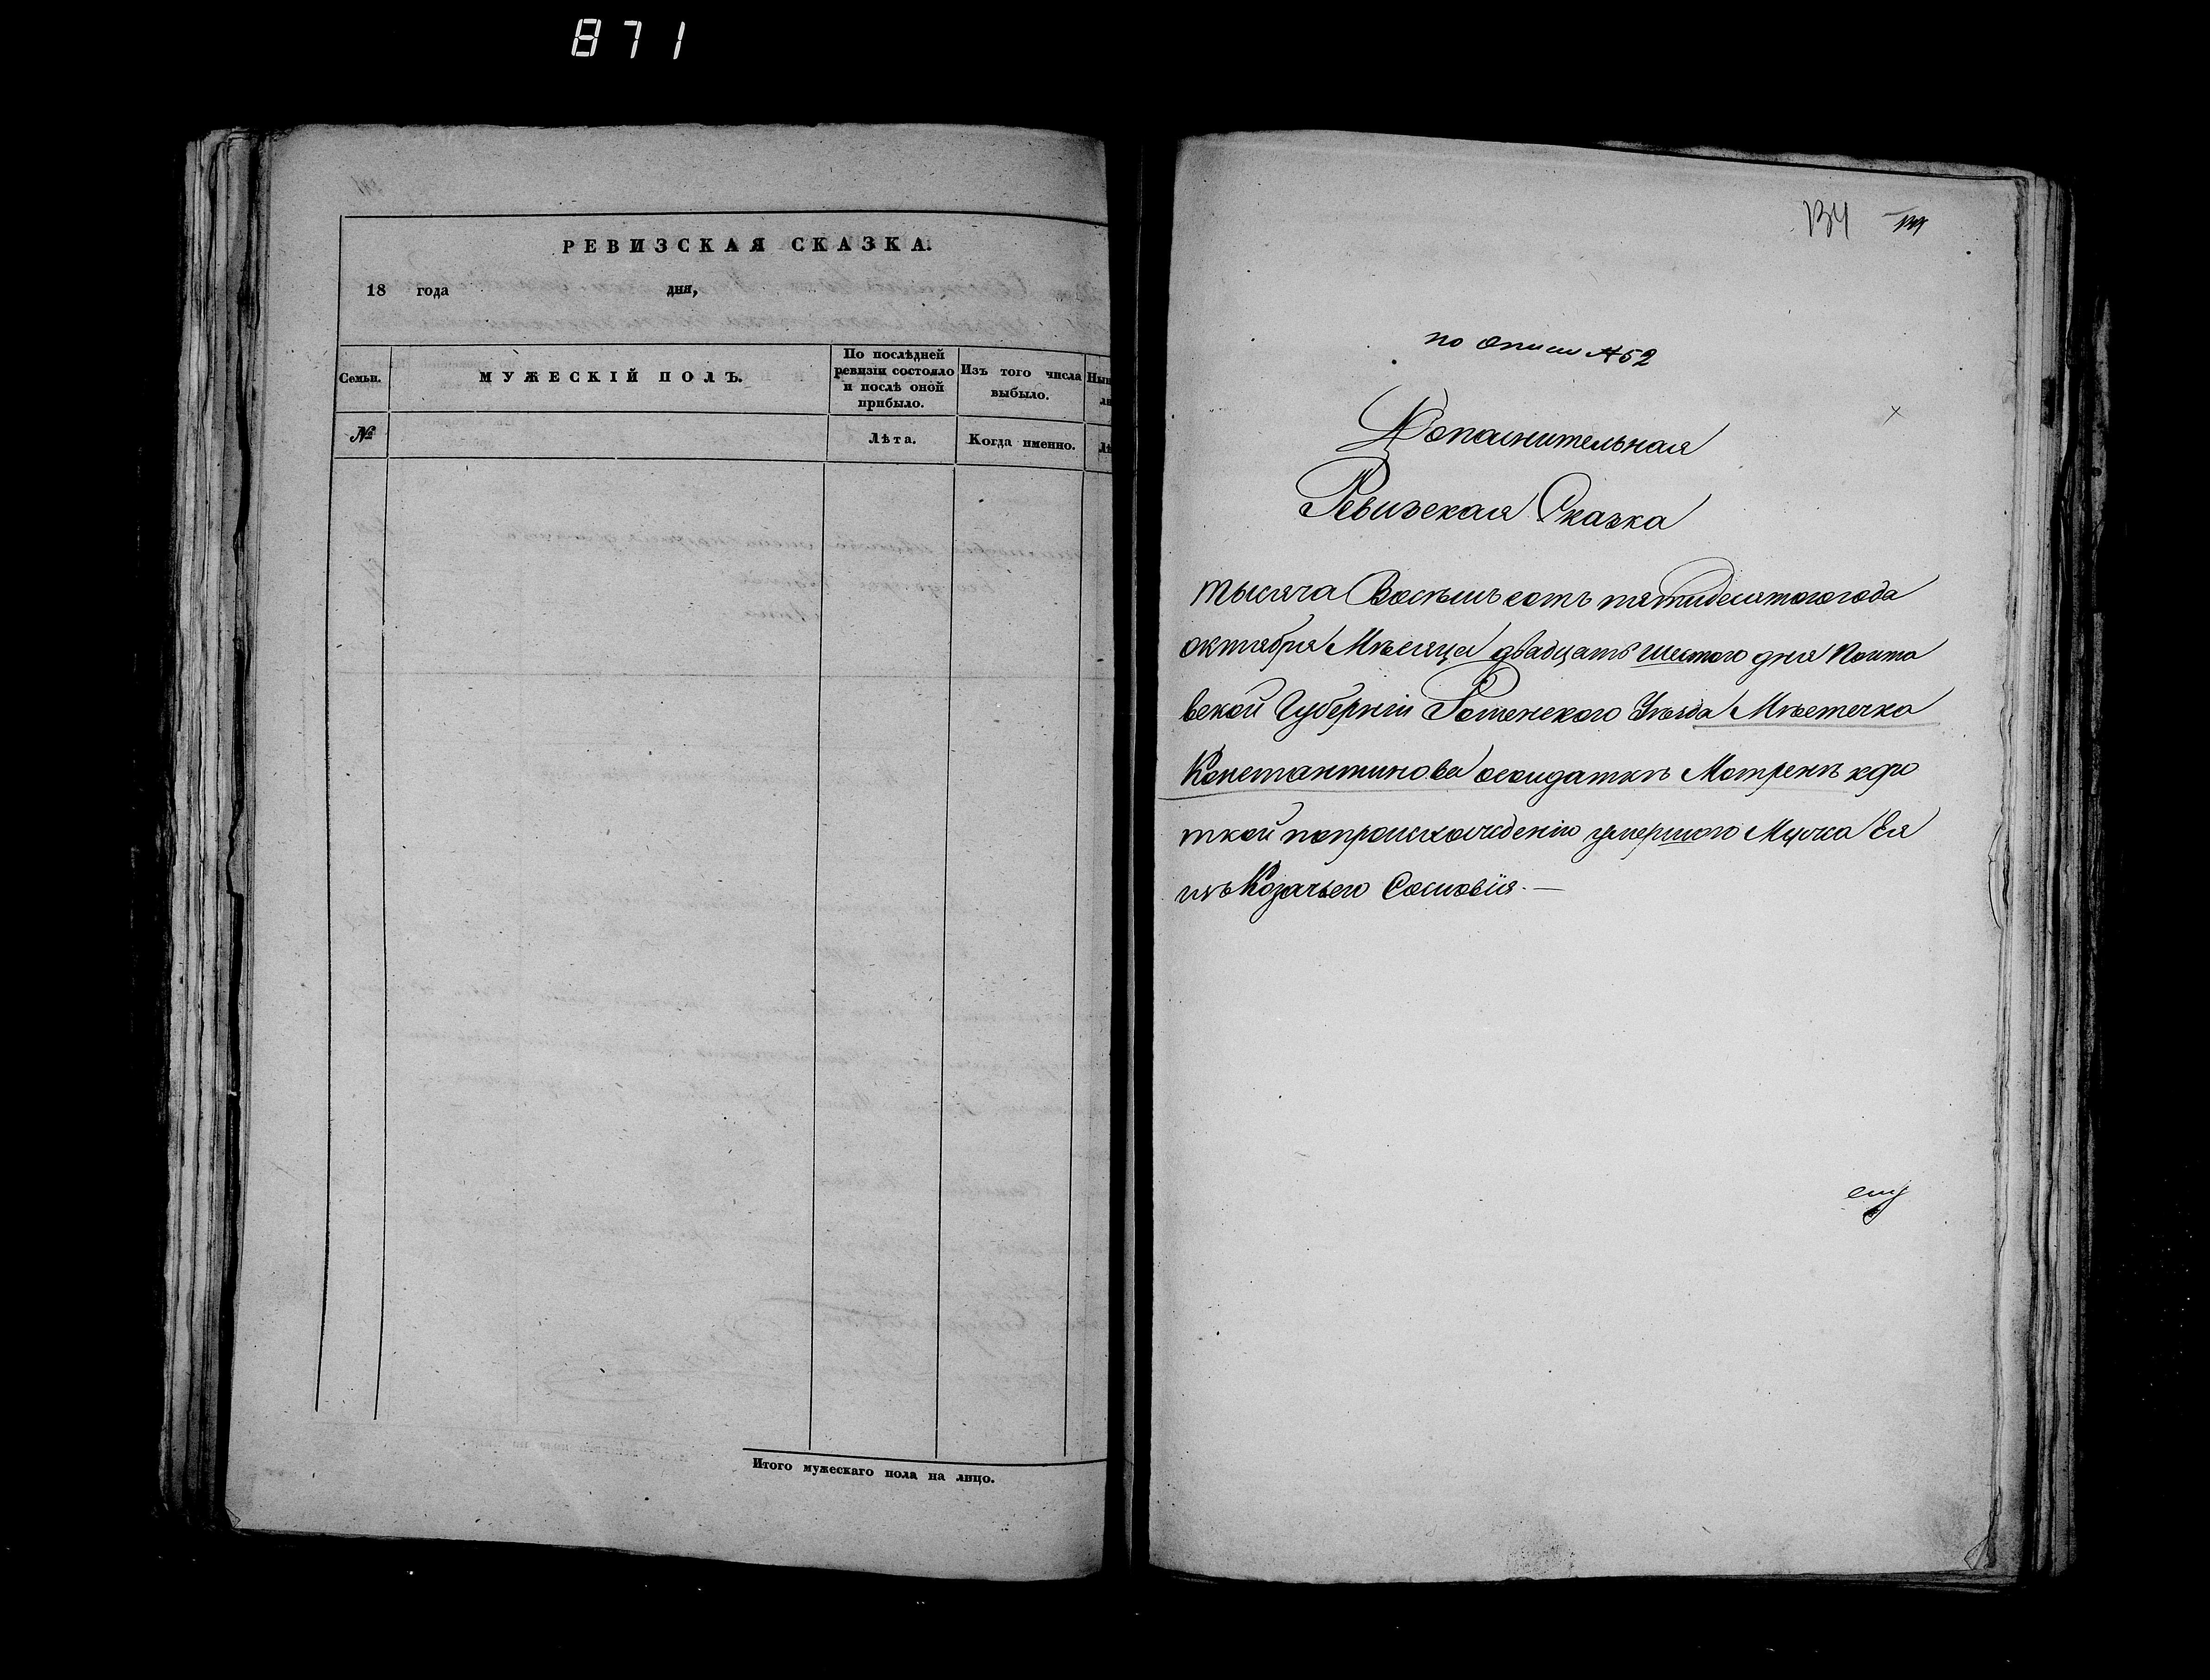 871
РЕВИЗСКАЯ СКАЗКА.
18 года дня,
Семьи.
МУЖЕСКІЙ ПОЛЪ.
По послѣдней
ревизіи состояло
и послѣ оной
прибыло.
Изъ того числа
выбыло.
№
Лѣта.
Когда именно.
Итого мужескаго пола на лицо.
134
по описи №52
Дополнительная
Ревизская Сказка
тысяча Восѣмь сотъ пятидесятого года
октября Мѣсяца двадцать шестого дня Полта
вской Губерніи Роменского Уѣзда Мѣстечка
Константинова осолдаткѣ Мотренѣ
ткой попроисхождѣнію умершого Мужа Ея
изъ Козачьего Сословія. —